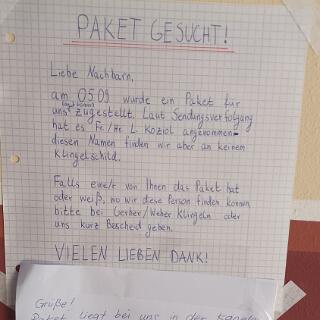 PAKET GESUCHT!
Liebe Nachbarn,
am 05.09 wurde ein Paket für
uns zugestellt. Laut Sendungsverfolgung
hat es Fr./Hr. L. Koziol angenommen–
diesen Namen finden wir aber an keinem
Klingelschild.
Falls eine/r von Ihnen das Paket hat
oder weiß, wo wir diese Person finden können,
bitte bei Gerber/Weber klingeln oder
uns kurz Bescheid geben.
VIELEN LIEBEN DANK!
Grüße!
Paket liegt bei uns in der